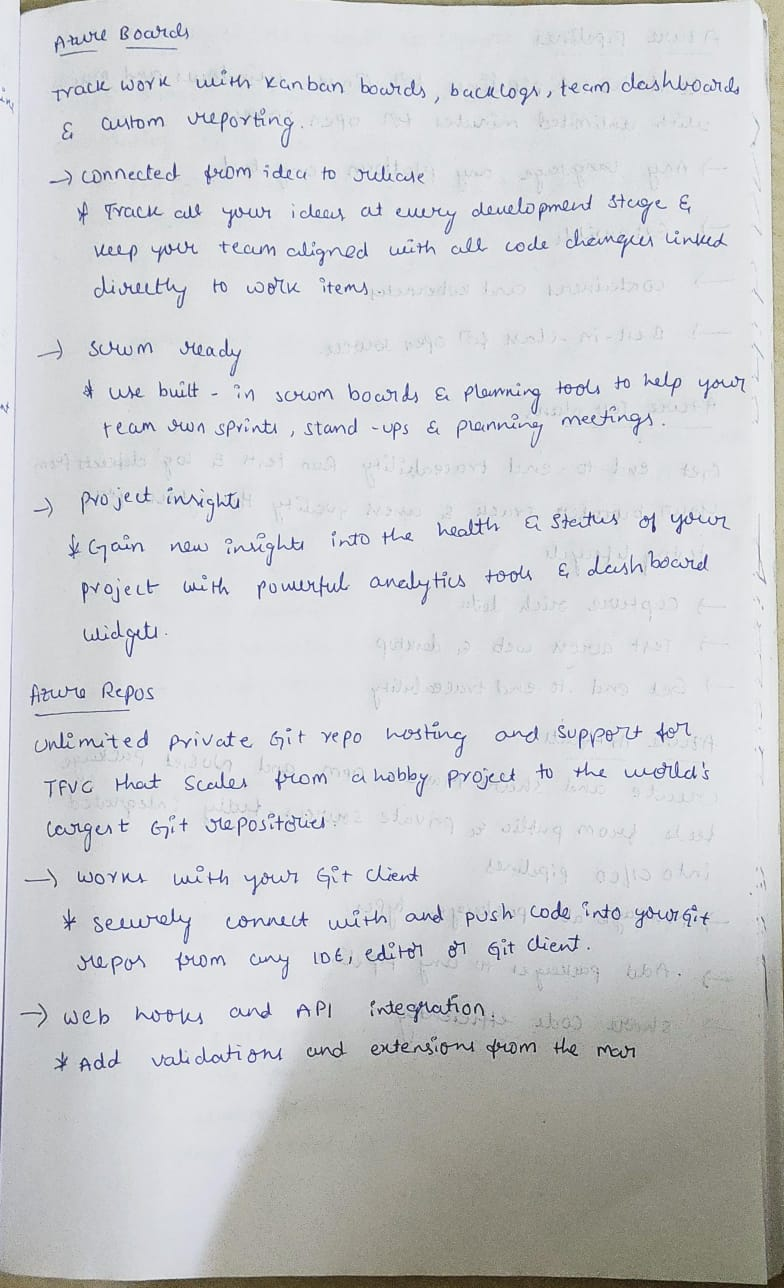 Azure Boards
Track work with Kanban boards, backlogs, team dashboards
& custom reporting.
→ connected from idea to release
* Track all your ideas at every development stage &
keep your team aligned with all code changes linked
directly to work items.
→ scrum ready
* use built-in scrum boards & planning tools to help your
team run sprints, stand-ups & planning meetings.
→ project insights
* Gain new insights into the health & status of your
project with powerful analytics tools & dashboard
widgets.
Azure Repos
Unlimited private Git repo hosting and support for
TFVC that scales from a hobby project to the world's
largest Git repositories.
→ works with your Git client
* securely connect with and push code into your Git
repos from any IDE, editor or Git client.
→ web hooks and API integration.
* Add validations and extensions from the mar